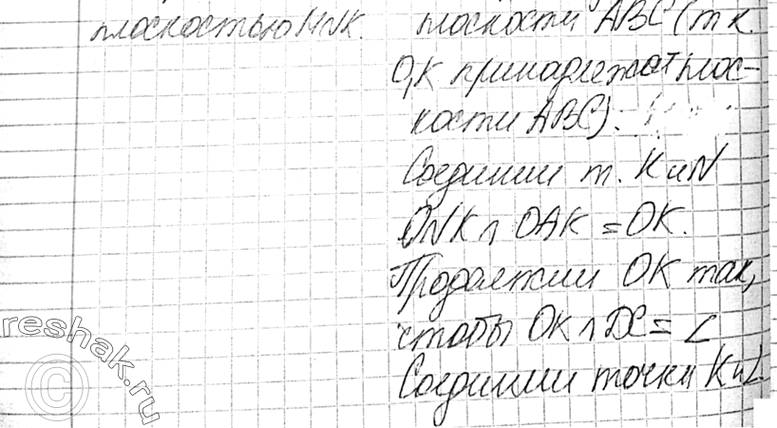 плоскостью MNK.
плоскости ABC (т к.
O,K принадлежат плос-
кости ABC).
Соединим т. K и N
ONK ∩ OAK = OK.
Продолжим OK так,
чтобы OK ∩ DC = L
Соединим точки K и L
reshak.ru
©